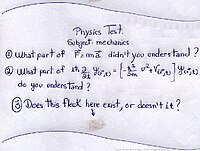 Physics Test.
Subject: mechanics.
① What part of F⃗=ma⃗ didn't you understand?
② What part of iħ ∂/∂t ψ(r⃗,t) = [-ħ²/2m ∇² + V(r⃗,t)] ψ(r⃗,t)
do you understand?
③ Does this fleck here exist, or doesn't it?